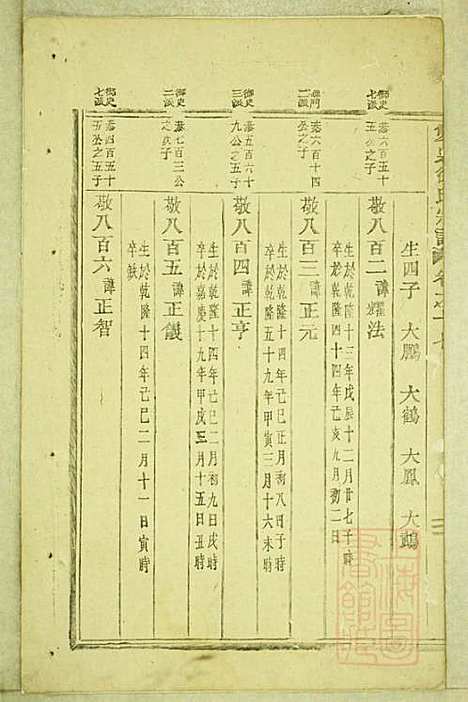 生四子 大鵬 大鶴 大鳳 大鵷
御史七派
泰六百五十五公之子
敬八百二 諱耀法
生於乾隆十三年戊辰十二月廿七子時
卒於乾隆四十四年己亥九月初二日
泰六百十四公之子
敬八百三 諱正元
卒於乾隆五十九年甲寅三月十六未時
御史三派
泰五百六十九公之子
敬八百四 諱正亨
生於乾隆十四年己巳正月初八日子時
御史二派
泰七百三公之次子
敬八百五 諱正儀
生於乾隆十四年己巳二月初九日戌時
卒於嘉慶十九年甲戌三月十五日丑時
御史七派
泰四百五十五公之五子
敬八百六 諱正智
生於乾隆十四年己巳二月十一日寅時
卒缺
上海圖書館藏